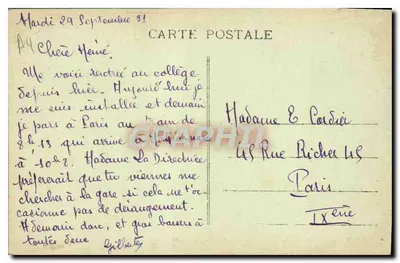 Mardi 29 Septembre 31
CARTE POSTALE
Chère Mémé.
Me voici rentrée au collège
depuis hier. Aujourd'hui je
me suis installée et demain
je pars à Paris au train de
8h13 qui arrive à
à 10h2. Madame La Directrice
préfèrerait que tu viennes me
chercher à la gare si cela ne t'oc-
casionne pas de dérangement.
A demain donc, et gros baisers à
toutes deux
Gilberte
Madame E Cordier
45 Rue Richer 45
Paris
IXème